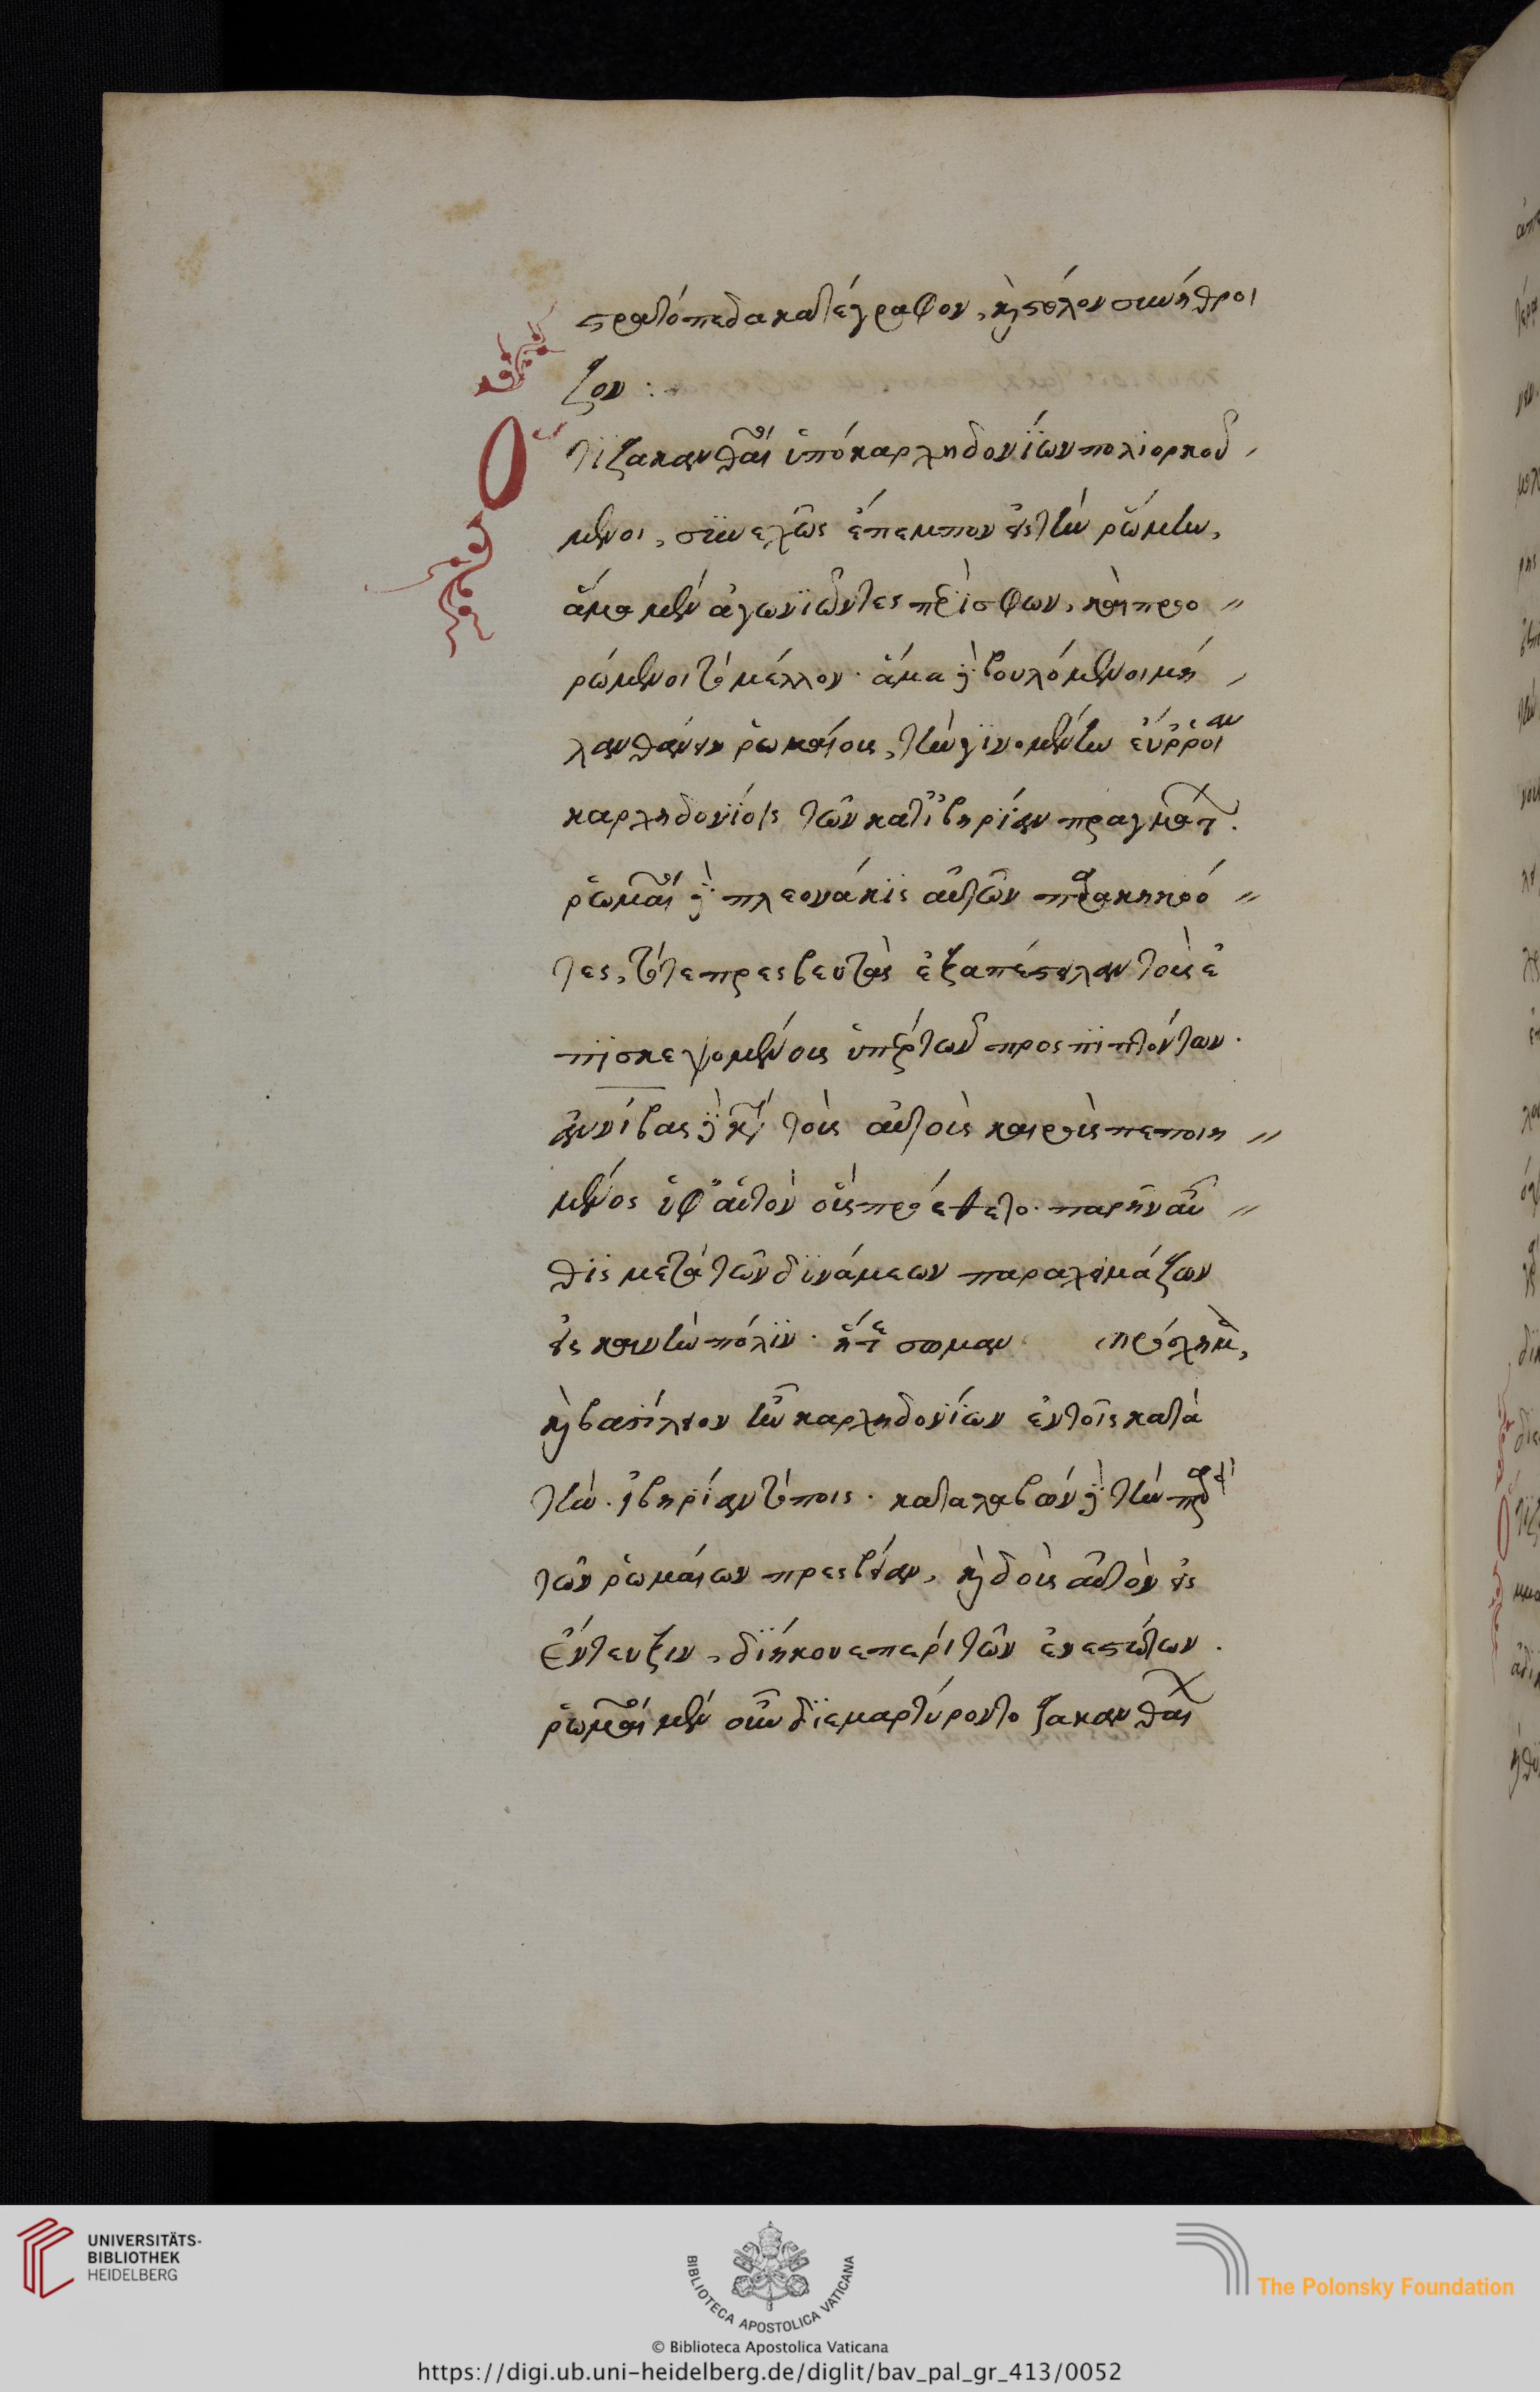 στρατόπεδα κατέγραφον, καὶ στόλον συνήθροι
ζον :
Ὅτι ζακανθαῖοι ὑπὸ καρχηδονίων πολιορκού
μενοι, συνεχῶς ἔπεμπον εἰς τὴν ῥώμην,
ἅμα μὲν ἀγωνιῶντες περὶ σφων, καὶ προο
ρώμενοι τὸ μέλλον· ἅμα δὲ βουλόμενοι μὴ
λανθάνειν ῥωμαίους, τὴν γινομένην εὔρροιαν
καρχηδονίοις τῶν κατ' ἰβηρίαν πραγμάτων.
ῥωμαῖοι δὲ πλεονάκις αὐτῶν παρακηκοό
τες, τότε πρεσβευτὰς ἐξαπέστειλαν τοὺς ἐ
πισκεψομένους ὑπὲρ τῶν προσπιπτόντων.
ἀννίβας δὲ κατὰ τοὺς αὐτοὺς καιροὺς πεποιη
μένος ὑφ' αὑτὸν οὓς προέθετο. παρῆν αὖ
θις μετὰ τῶν δυνάμεων παραχειμάζων
εἰς καινὴν πόλιν. πρόσχημα,
καὶ βασίλειον τῶν καρχηδονίων ἐν τοῖς κατὰ
τὴν ἰβηρίαν τόποις. καταλαβὼν δὲ τὴν παρὰ
τῶν ῥωμαίων πρεσβείαν, καὶ δοὺς αὑτὸν εἰς
ἔντευξιν, διήκουε περὶ τῶν ἐνεστώτων.
ῥωμαῖοι μὲν οὖν διεμαρτύροντο ζακανθαίων
UNIVERSITÄTS-
BIBLIOTHEK
HEIDELBERG
BIBLIOTECA APOSTOLICA VATICANA
The Polonsky Foundation
© Biblioteca Apostolica Vaticana
https://digi.ub.uni-heidelberg.de/diglit/bav_pal_gr_413/0052